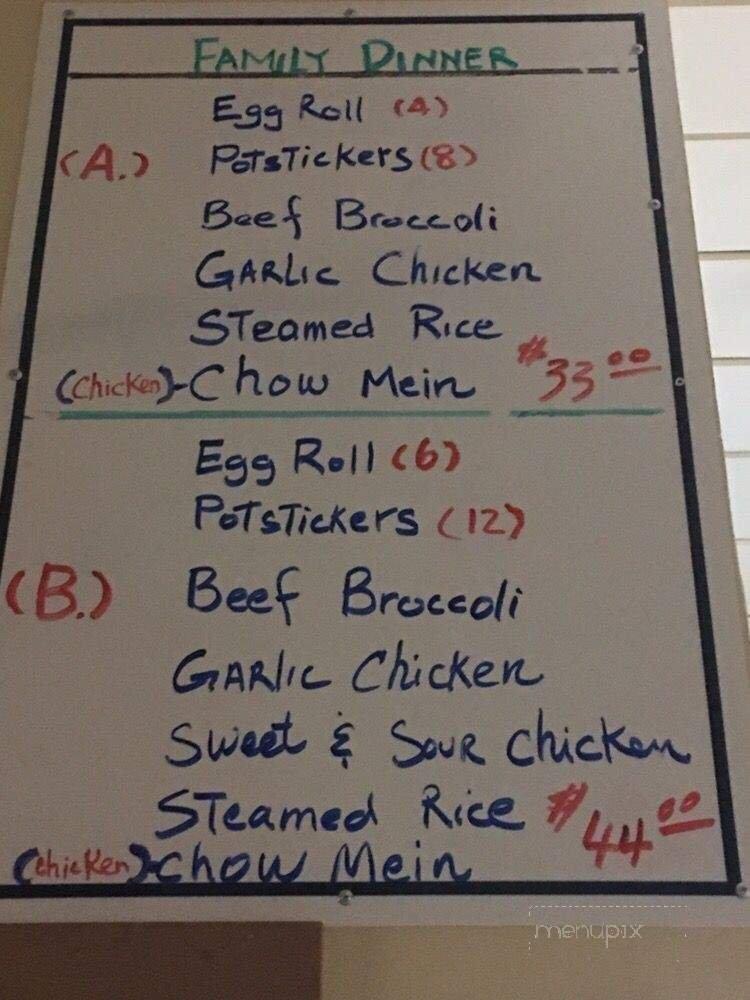 FAMILY DINNER
Egg Roll (4)
(A.) POTSTICKERS (8)
Beef Broccoli
GARLIC Chicken
STeamed Rice
(Chicken)-Chow Mein $33.00
Egg Roll (6)
POTSTICKERS (12)
(B.) Beef Broccoli
GARlic Chicken
Sweet & Sour Chicken
STeamed Rice $44.00
(Chicken)-Chow Mein
menupix